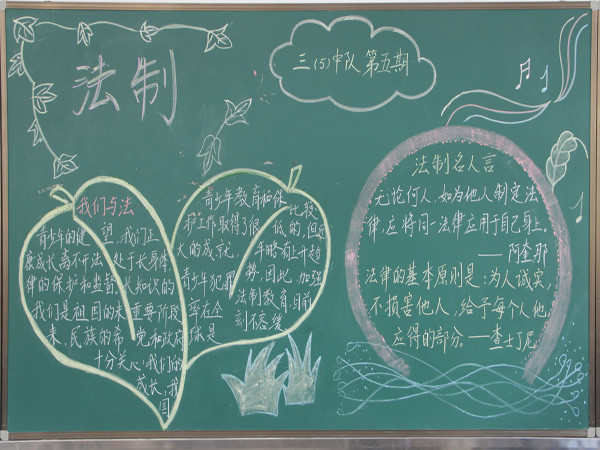 法制
三(5)中队 第五期
我们与法
青少年的健
康成长离不开法
律的保护和监督
我们是祖国的未
来，民族的希
望，我们正
处于长身体
长知识的
重要阶段
党和政府
十分关心我们的
成长，我
国
青少年教育和保
护工作取得了很
大的成就，
青少年犯罪
率在全
球是
比较
低的，但近
年略有上升趋
势，因此，加强
法制教育目前
刻不容缓
法制名人言
无论何人，如为他人制定法
律，应将同一法律应用于自己身上。
——阿奎那
法律的基本原则是：为人诚实，
不损害他人，给予每个人他
应得的部分。——查士丁尼